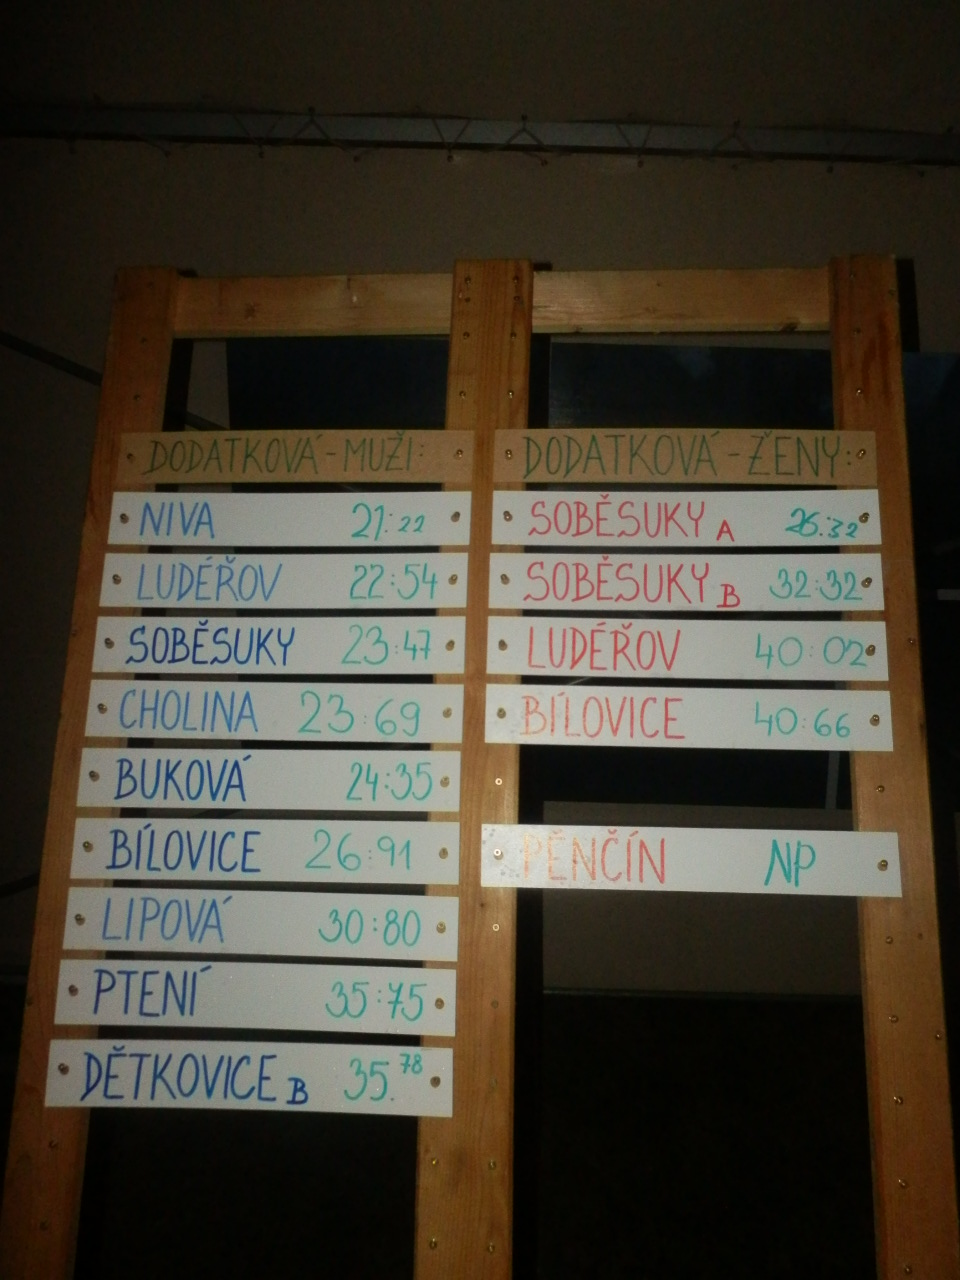 DODATKOVÁ - MUŽI:
NIVA 21:22
LUDÉŘOV 22:54
SOBĚSUKY 23:47
CHOLINA 23:69
BUKOVÁ 24:35
BÍLOVICE 26:91
LIPOVÁ 30:80
PTENÍ 35:75
DĚTKOVICE B 35.78
DODATKOVÁ - ŽENY:
SOBĚSUKY A 26:32
SOBĚSUKY B 32:32
LUDÉŘOV 40:02
BÍLOVICE 40:66
PĚNČÍN NP